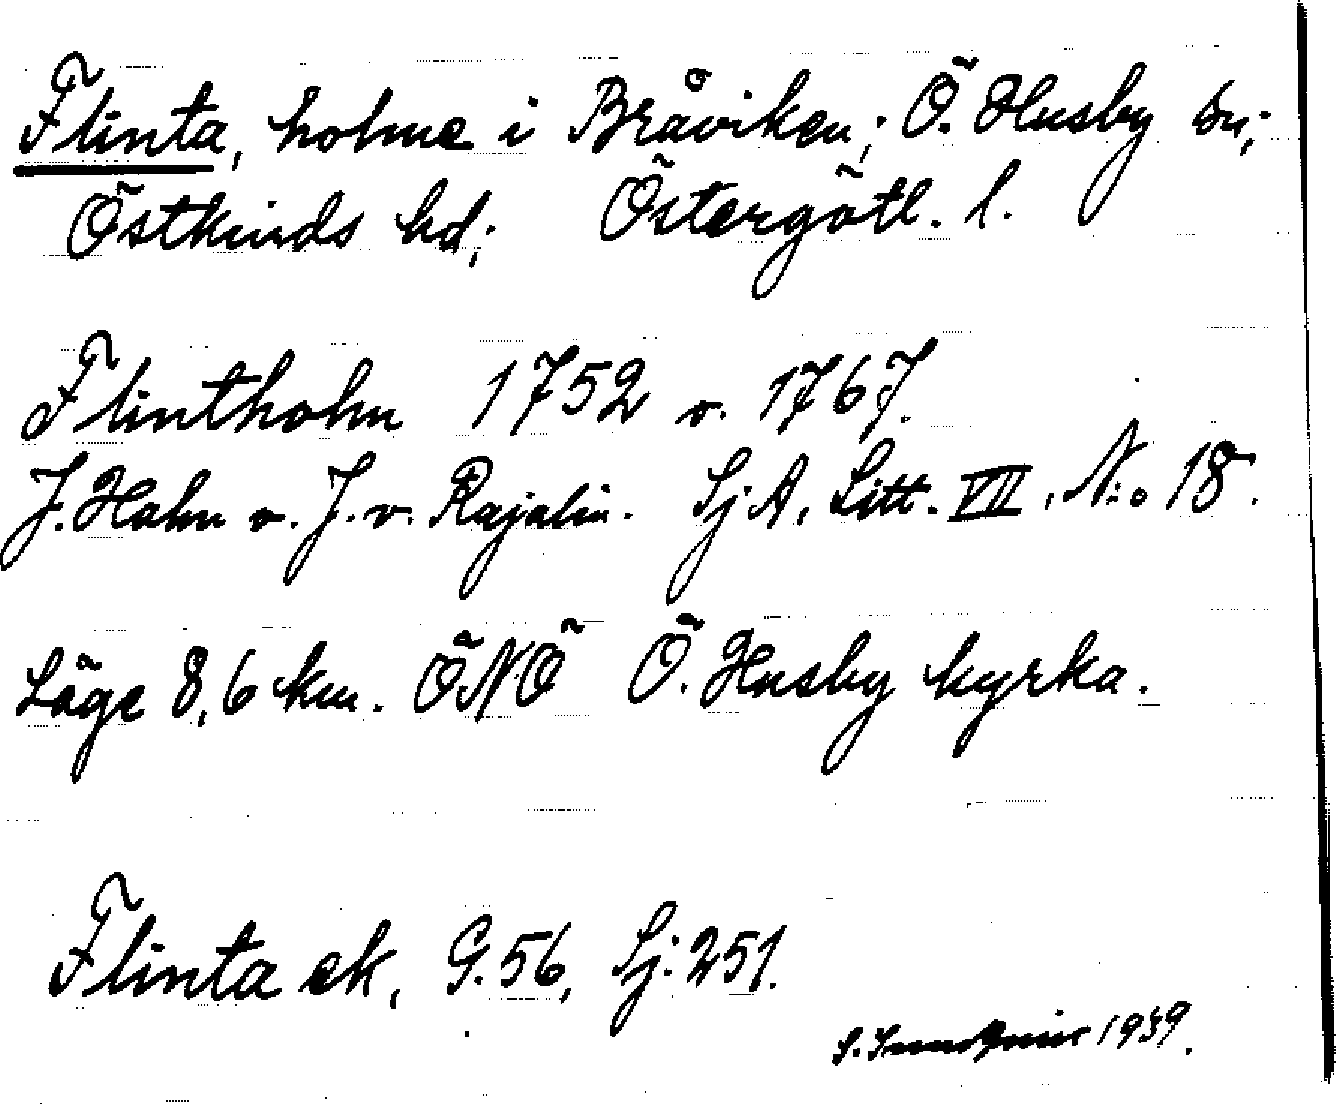 Flinta, holme i Bråviken; Ö. Husby sn;
Östkinds hd; Östergötl. l.
Flintholm 1752 o. 1767.
J. Hahn o. J. v. Rajalin. Sj A, Litt. VII, N:o 18.
Läge 8,6 km. ÖNÖ Ö. Husby kyrka.
Flinta ek, G. 56, Sj: 251.
1939.